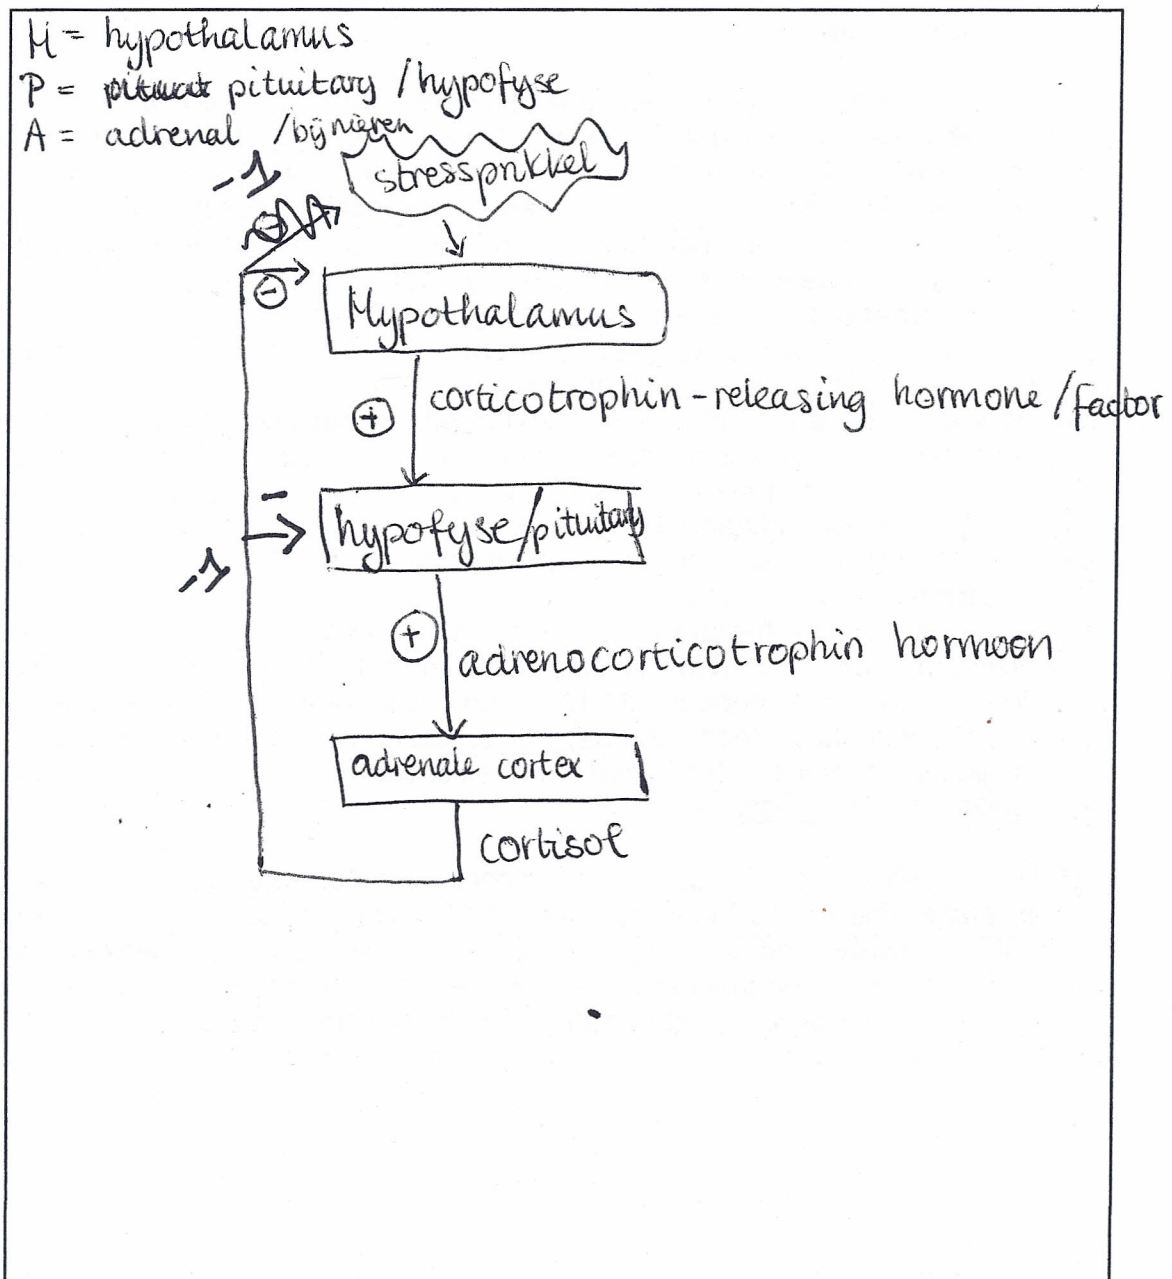 H = hypothalamus
P = pituitary / hypofyse
A = adrenal / bijnieren
-1
stressprikkel
-
Hypothalamus
+
corticotrophin-releasing hormone / factor
-
hypofyse/pituitary
-1
+
adrenocorticotrophin hormoon
adrenale cortex
cortisol